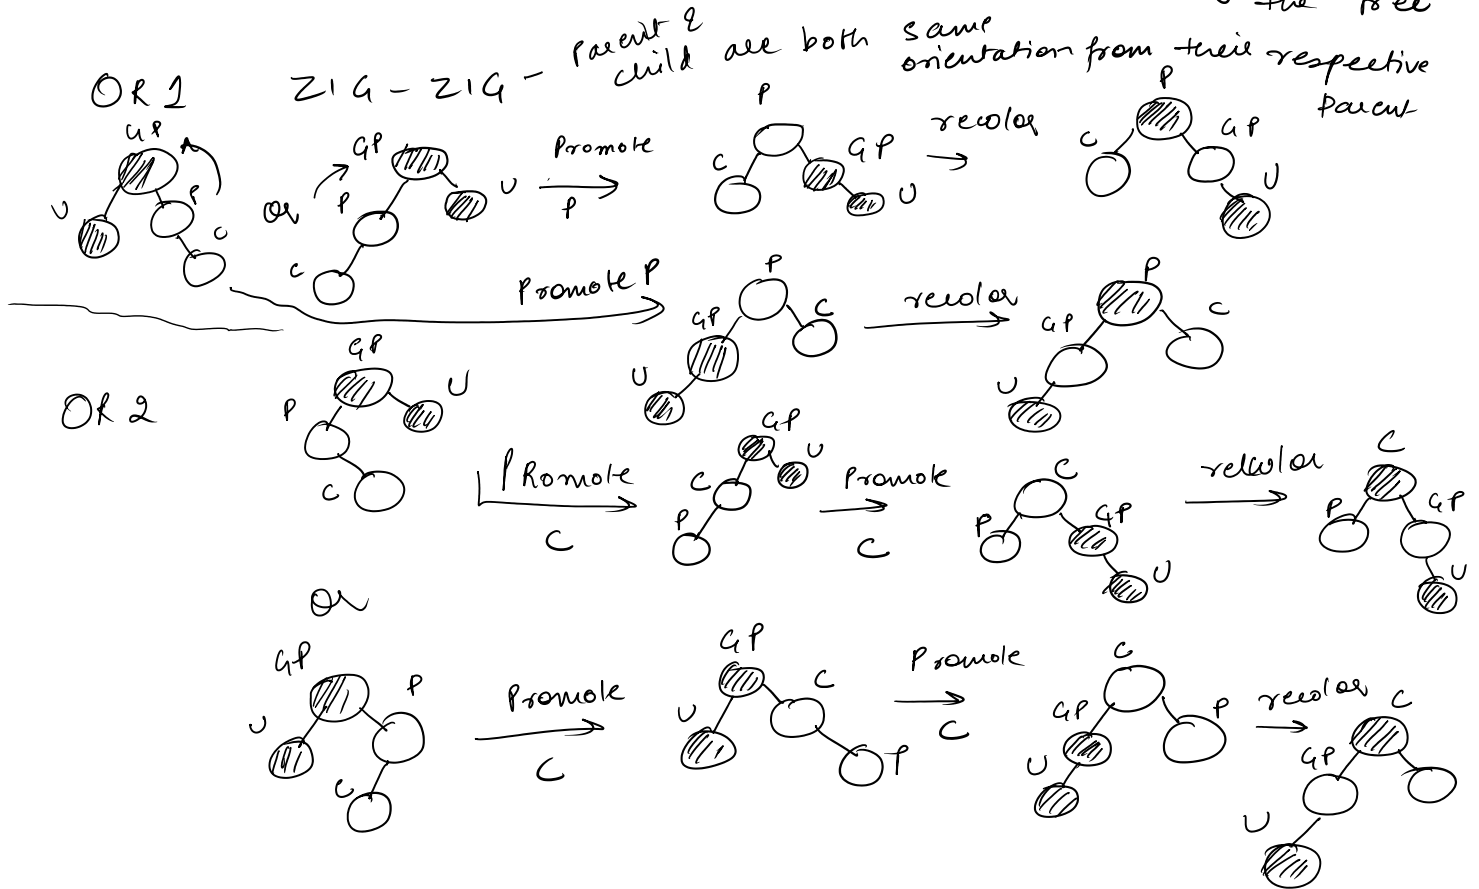 the tree
ZIG - ZIG - Parent & child are both same orientation from their respective Parent
OR 1
GP
U
P
C
or
GP
P
U
C
Promote
P
P
C
GP
U
recolor
P
C
GP
U
Promote P
P
GP
C
U
recolor
P
GP
C
U
OR 2
GP
P
U
C
PRomote
C
GP
U
C
P
Promote
C
C
P
GP
U
C
P
GP
U
or
GP
P
U
C
Promote
C
GP
U
C
P
Promote
C
C
GP
P
U
recolor
C
GP
U